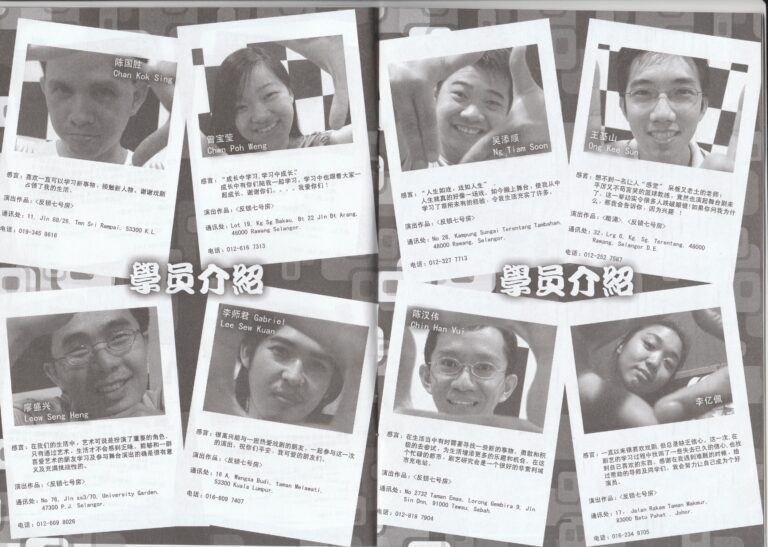 陈国胜
Chan Kok Sing
感言：喜欢一直可以学习新事物，接触新人物，谢谢戏剧
占领了我的生活。
演出作品：<反锁七号房>
通讯处：11, Jln 8B/26, Tmn Sri Rampai, 53300 K.L.
电话：019-345 8616
曾宝莹
Chan Poh Weng
感言："成长中学习,学习中成长"
成长中有你们陪我一起学习，学习中也跟着大家一
起成长，谢谢你们．．．．我爱你们！
演出作品：<反锁七号房>
通讯处：Lot 19, Kg Sg Bakau, Bt 22 Jln Bt Arang,
48000 Rawang Selangor.
电话：012-616 7313
吴添顺
Ng Tiam Soon
感言："人生如戏，戏如人生"
人生就真的好像一场戏，如今踏上舞台，使我从中
学习了前所未有的经验，令我生活充实了许多．
演出作品：<反锁七号房>
通讯处：No 28, Kampung Sungai Terentang Tambahan,
48000 Rawang, Selangor.
电话：012-327 7713
王基山
Ong Kee Sun
感言：想不到一名让人"感觉"呆板又老土的老师；
平厉又不苟言笑的篮球教练，竟然也演起舞台剧来
了，这一举动实令很多人跌破眼镜！如果你问我为什
么，那我会告诉你，因为兴趣 ！
通讯处：32, Lrg 6, Kg. Sg. Terentang, 48000
Rawang, Selangor D.E.
电话：012-252 7567
學员介紹
學员介紹
廖盛兴
Leow Seng Heng
感言：在我们的生活中，艺术可说是扮演了重要的角色，
只有通过艺术，生活才不会感到乏味。能够和一群
喜爱艺术的朋友学习及参与舞台演出的确是很有意
义及充满挑战性的。
演出作品：<反锁七号房>
通讯处：No 76, Jln ss3/70, University Garden,
47300 P.J. Selangor.
电话：012-669 8026
李师君 Gabriel
Lee Sew Kuan
感言：很高兴能与一班热爱戏剧的朋友，一起参与这一次
的演出，祝你们平安，我可爱的朋友们。
演出作品：<反锁七号房>
通讯处：16 A, Wangsa Budi, taman Melawati,
53300 Kuala Lumpur.
电话：016-609 7407
陈汉伟
Chin Han Vui
感言：在生活当中有时需要寻找一些新的事物，勇敢和积
极的去尝试，为生活增添更多的乐趣和机会。在这
个忙碌的都市，剧艺研究会是一个很好的非食利城
市充电站．
演出作品：<反锁七号房>
通讯处：No 2732 Taman Emas, Lorong Gembira 9, Jln
Sin Onn, 91000 Tawau, Sabah.
电话：012-818 7904
李亿佩
感言：一直以来很喜欢戏剧,但总是缺乏信心。这一次,在
剧艺的学习过程中找回了一些失去已久的信心,也找
到自己喜欢的东西。感谢在我遇到难题的时候，给
过帮助的导师及同学们，我会努力让自己成为个好
演员。
演出作品：<反锁七号房>
通讯处：17, Jalan Rakam Taman Makmur,
83000 Batu Pahat , Johor.
电话：016-234 9105